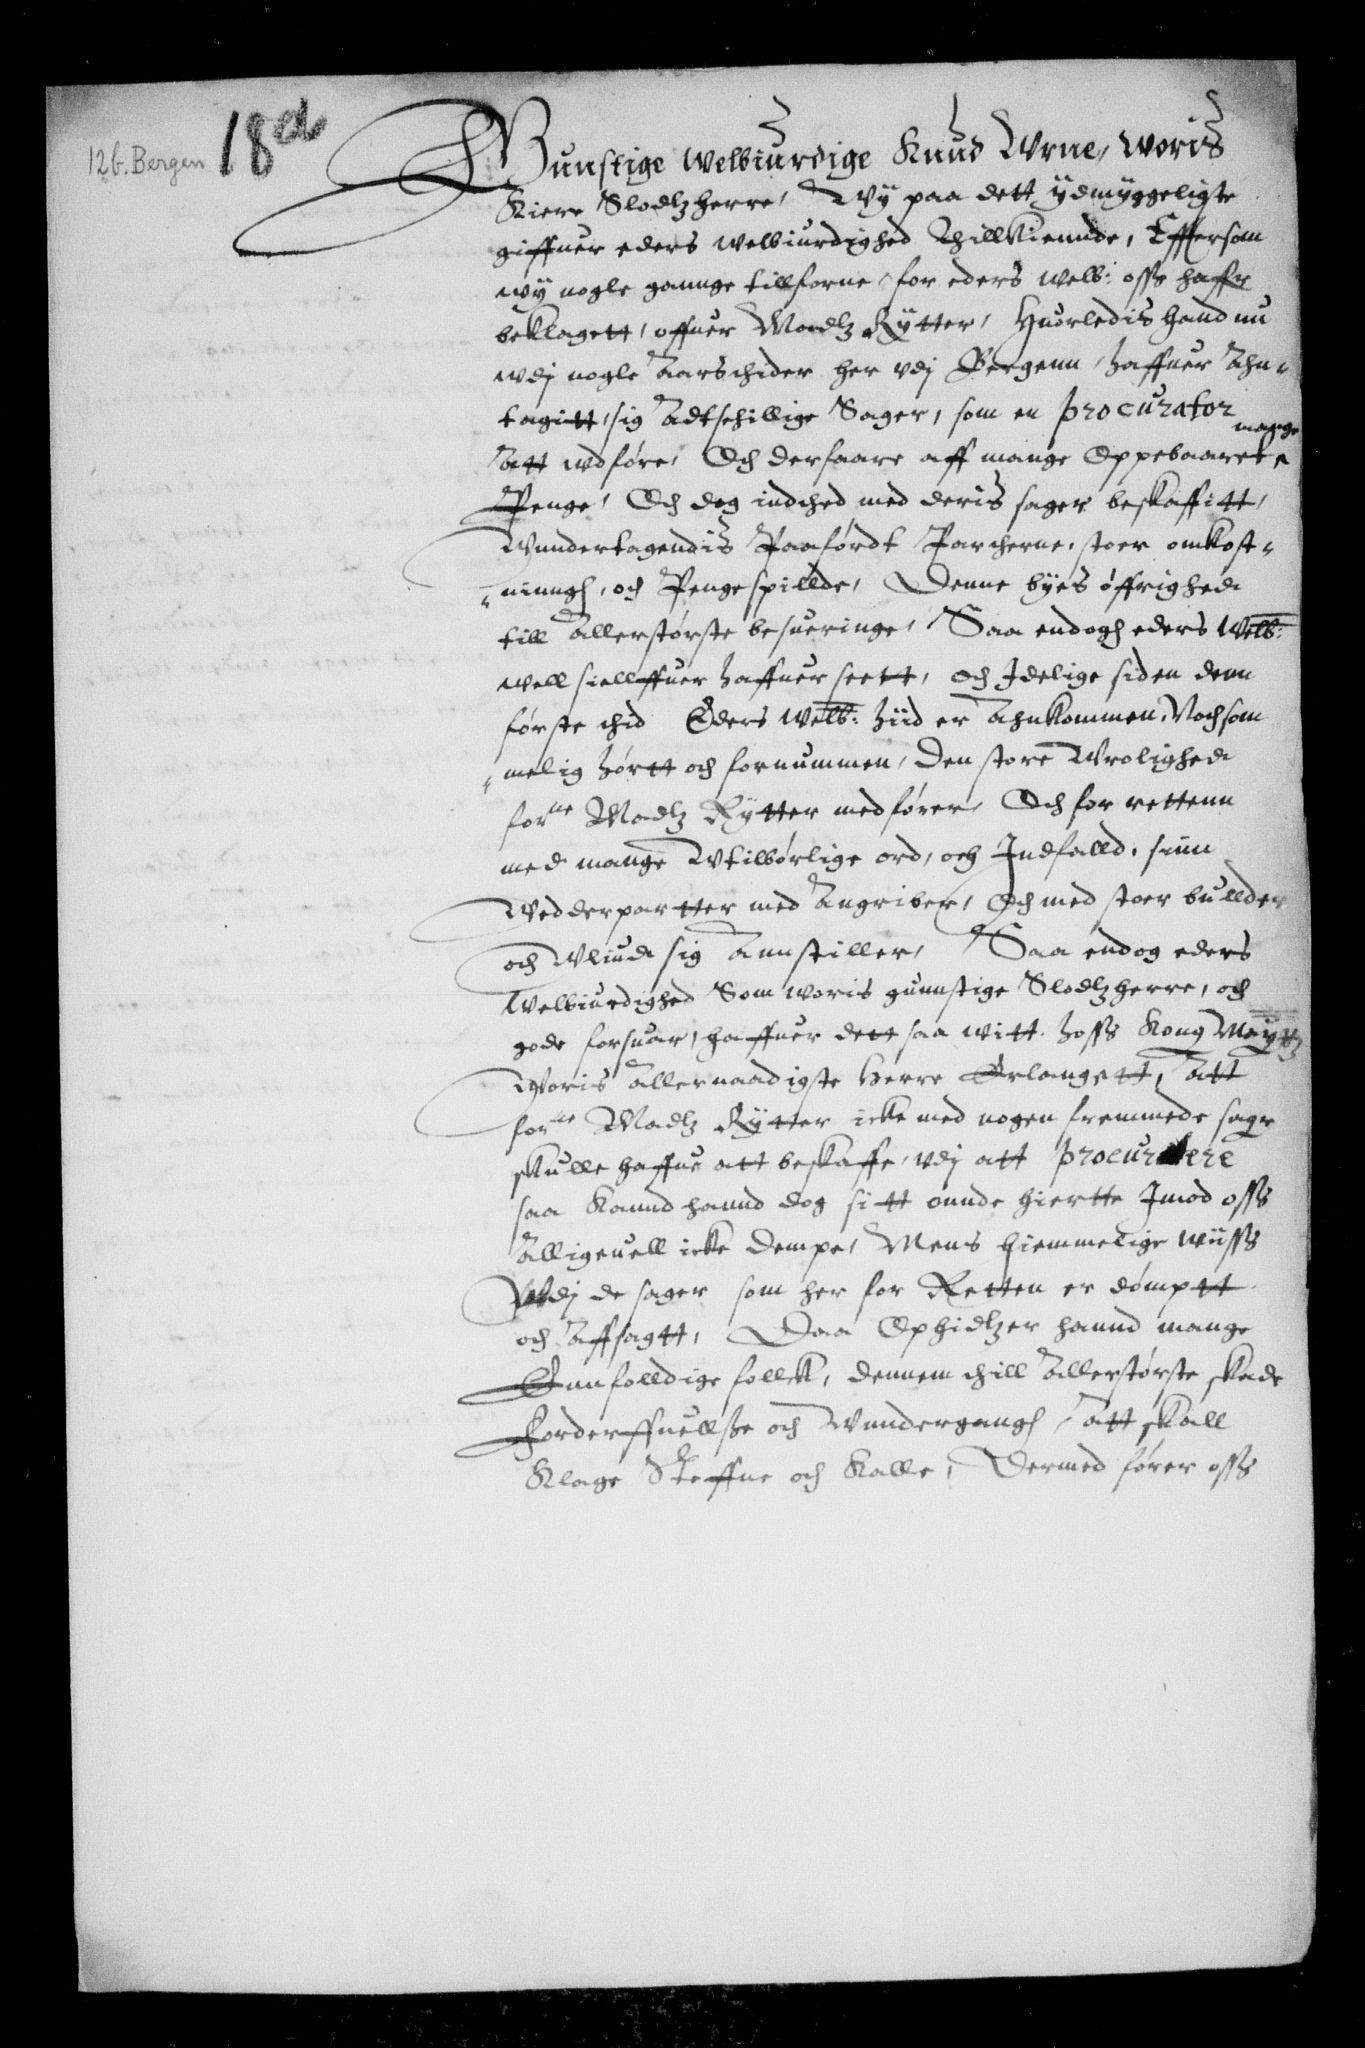 12b. Bergen
18 eb
Gunstige welbiurdige Knud Wrne, woris
Kiere Slodtzherre, Wÿ paa dett ÿdmÿggeligte
giffuer eders welbiurdighed Thillkiennde, Effersom
wÿ nogle gannge tillforne, for eders welb: oss haffr
beklagett, offuer Madtz Rÿtter, Huorledis hand nu
wdj nogle Aarschider her vdj Bergenn, haffuer Ahn-
tagitt, sig Adtschillige Sager, som en procurator
Att wdføre, Och derfaare aff mange Oppebaaret mange
Penge, Och dog indthed med deris sager beskaffitt,
Wundertagendis Paaførdt Parcherne, stoer omkost-
-ninngh, och Pengespillde, Denne byes øffrighed
till Allerstørste besueringe, Saa endogh eders Welb:
well sielffuer haffuer seett, och Idelige siden denn
første thid Eders Welb: hiid er Ahnkommen, Nochsom
-melig hørtt och fornummen, den store Wrolighed
forne Madtz Rÿtter medfører, Och for rettenn
med mange Wtilbørlige ord, och Indfalld, sinn
Wedderpartter med Angriber, Och med stoer bullder
och Wliud sig Annstiller, Saa endog eders
Welbiurdighed Som woris gunnstige Slodtzherre, och
gode forsuar, haffuer dett saa witt hoss Kong Maÿttz
Woris Allernaadigste Herre Erlangett, Att
forne Madtz Rÿtter icke med nogen fremmede sagr
skulle haffue att beskaffe, vdj att procurere
saa kannd hannd dog sitt onnde hiertte Imod oss
Alligeuell icke dempe, Mens hiemmelige wiiss
Wdj de sager som her for Retten er dømptt
och Affsagtt, Daa Ophidtzer hannd mange
Eenfolldige follck, dennem thill Allerstørste skade
Forderffuellsse och Wundergangh, Att skall
Klage Steffne och Kalle, Dermed fører oss